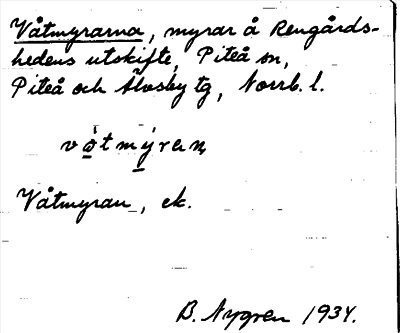 Våtmyrarna, myrar å Rengårds-
hedens utskifte, Piteå sn,
Piteå och Älvsby tg, Norrb. l.
vò̱tmý̱ran̥
Våtmyran, ek.
B. Nygren 1934.